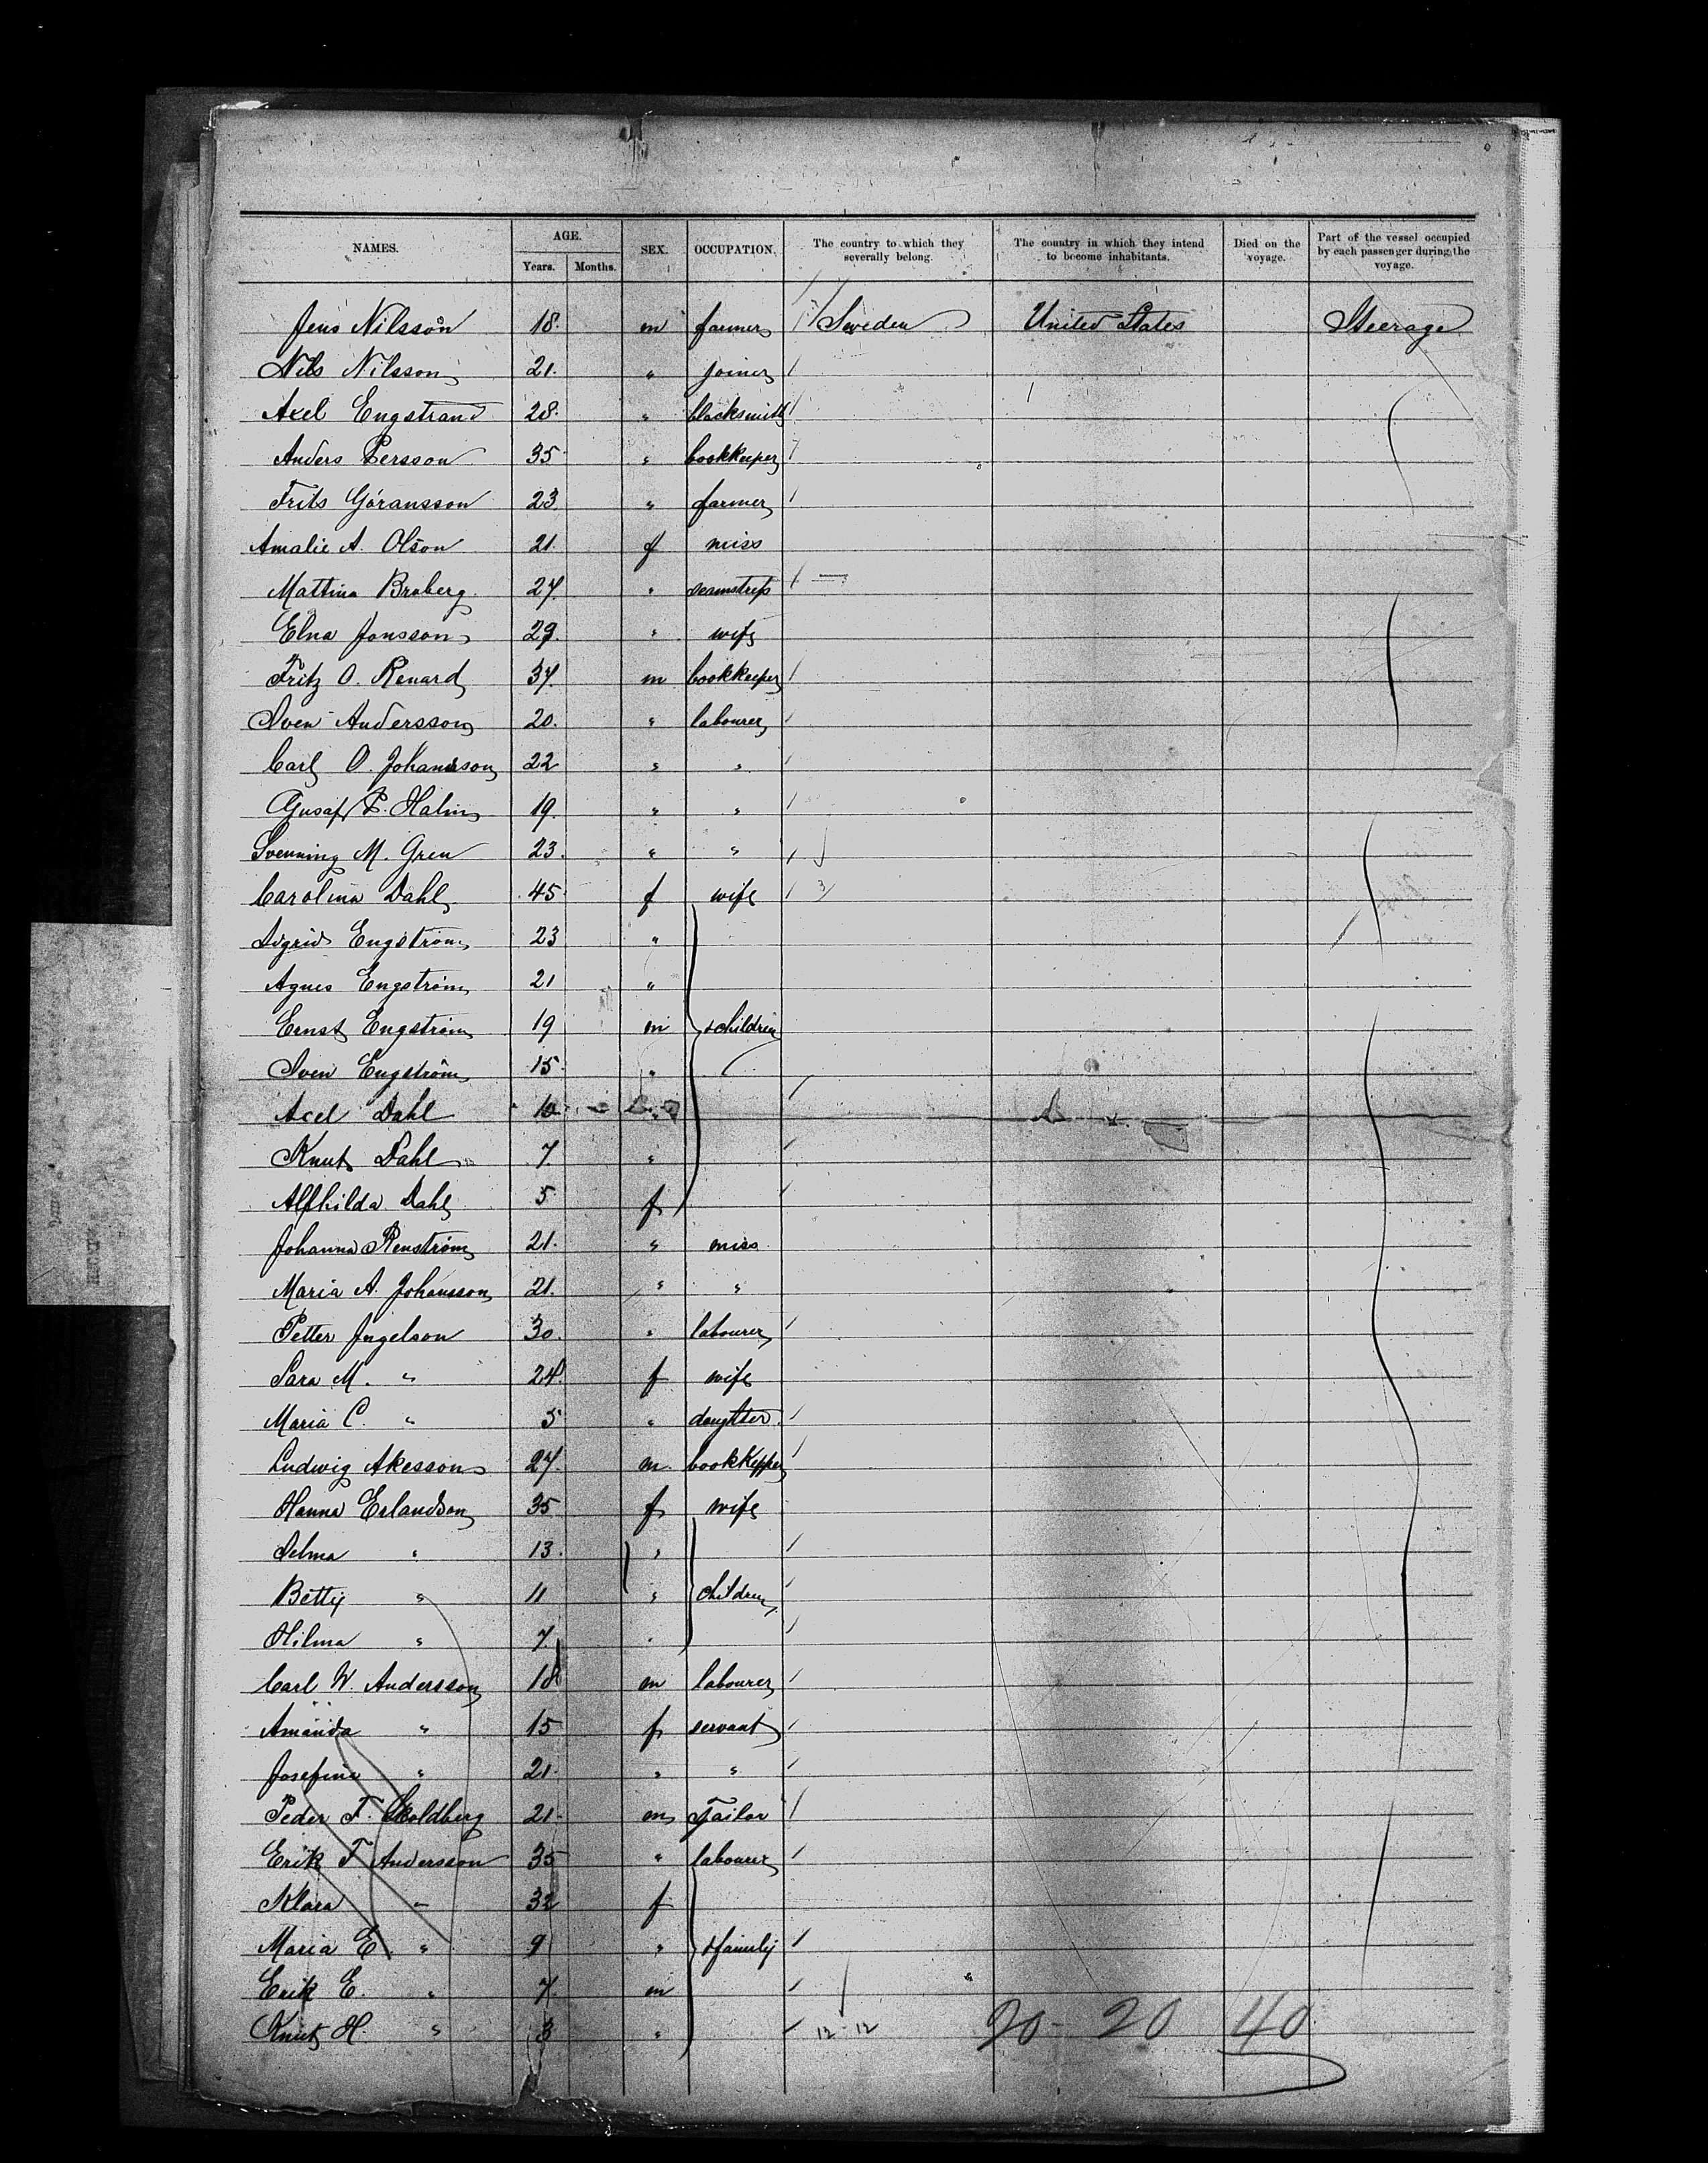 NAMES. AGE. Years. Months. SEX. OCCUPATION. The country to which they severally belong. The country in which they intend to become inhabitants. Died on the voyage. Part of the vessel occupied by each passenger during the voyage.
Jens Nilsson 18. m farmer Sweden United States Steerage
Nils Nilsson 21. " joiner
Axel Engstrand 28. " blacksmith
Anders Persson 35 " bookkeeper
Frits Göransson 23 " farmer
Amalie A. Olson 21. f miss
Mattina Broberg 27. " seamstress
Elna Jonsson 29. " wife
Fritz O. Renard 37. m bookkeeper
Sven Andersson 20. " labourer
Carl O. Johansson 22 " "
Gusaf P. Halm 19. " "
Svenning M. Gren 23. " "
Carolina Dahl 45. f wife
Sigrid Engström 23 "
Agnes Engström 21 "
Ernst Engström 19 m children
Sven Engström 15. "
Axel Dahl 10 "
Knut Dahl 7. "
Alfhilda Dahl 5 f
Johanna Renström 21. " miss
Maria A. Johansson 21. " "
Petter Ingelson 30. " labourer
Sara M. " 24. f wife
Maria C. " 5 " daughter
Ludwig Akesson 27. m. bookkepper
Hanna Erlandson 35 f wife
Selma " 13. "
Betty " 11 " children
Hilma " 7. "
Carl W. Andersson 18 m labourer
Amanda " 15 f servant
Josefina " 21. " "
Peder F. Skoldberg 21. m Tailor
Erik F. Andersson 35 " labourer
Klara " 32 f
Maria E. " 9 " family
Erik E. " 7. m
Knut H. " 3 " 12-12 20-20 40